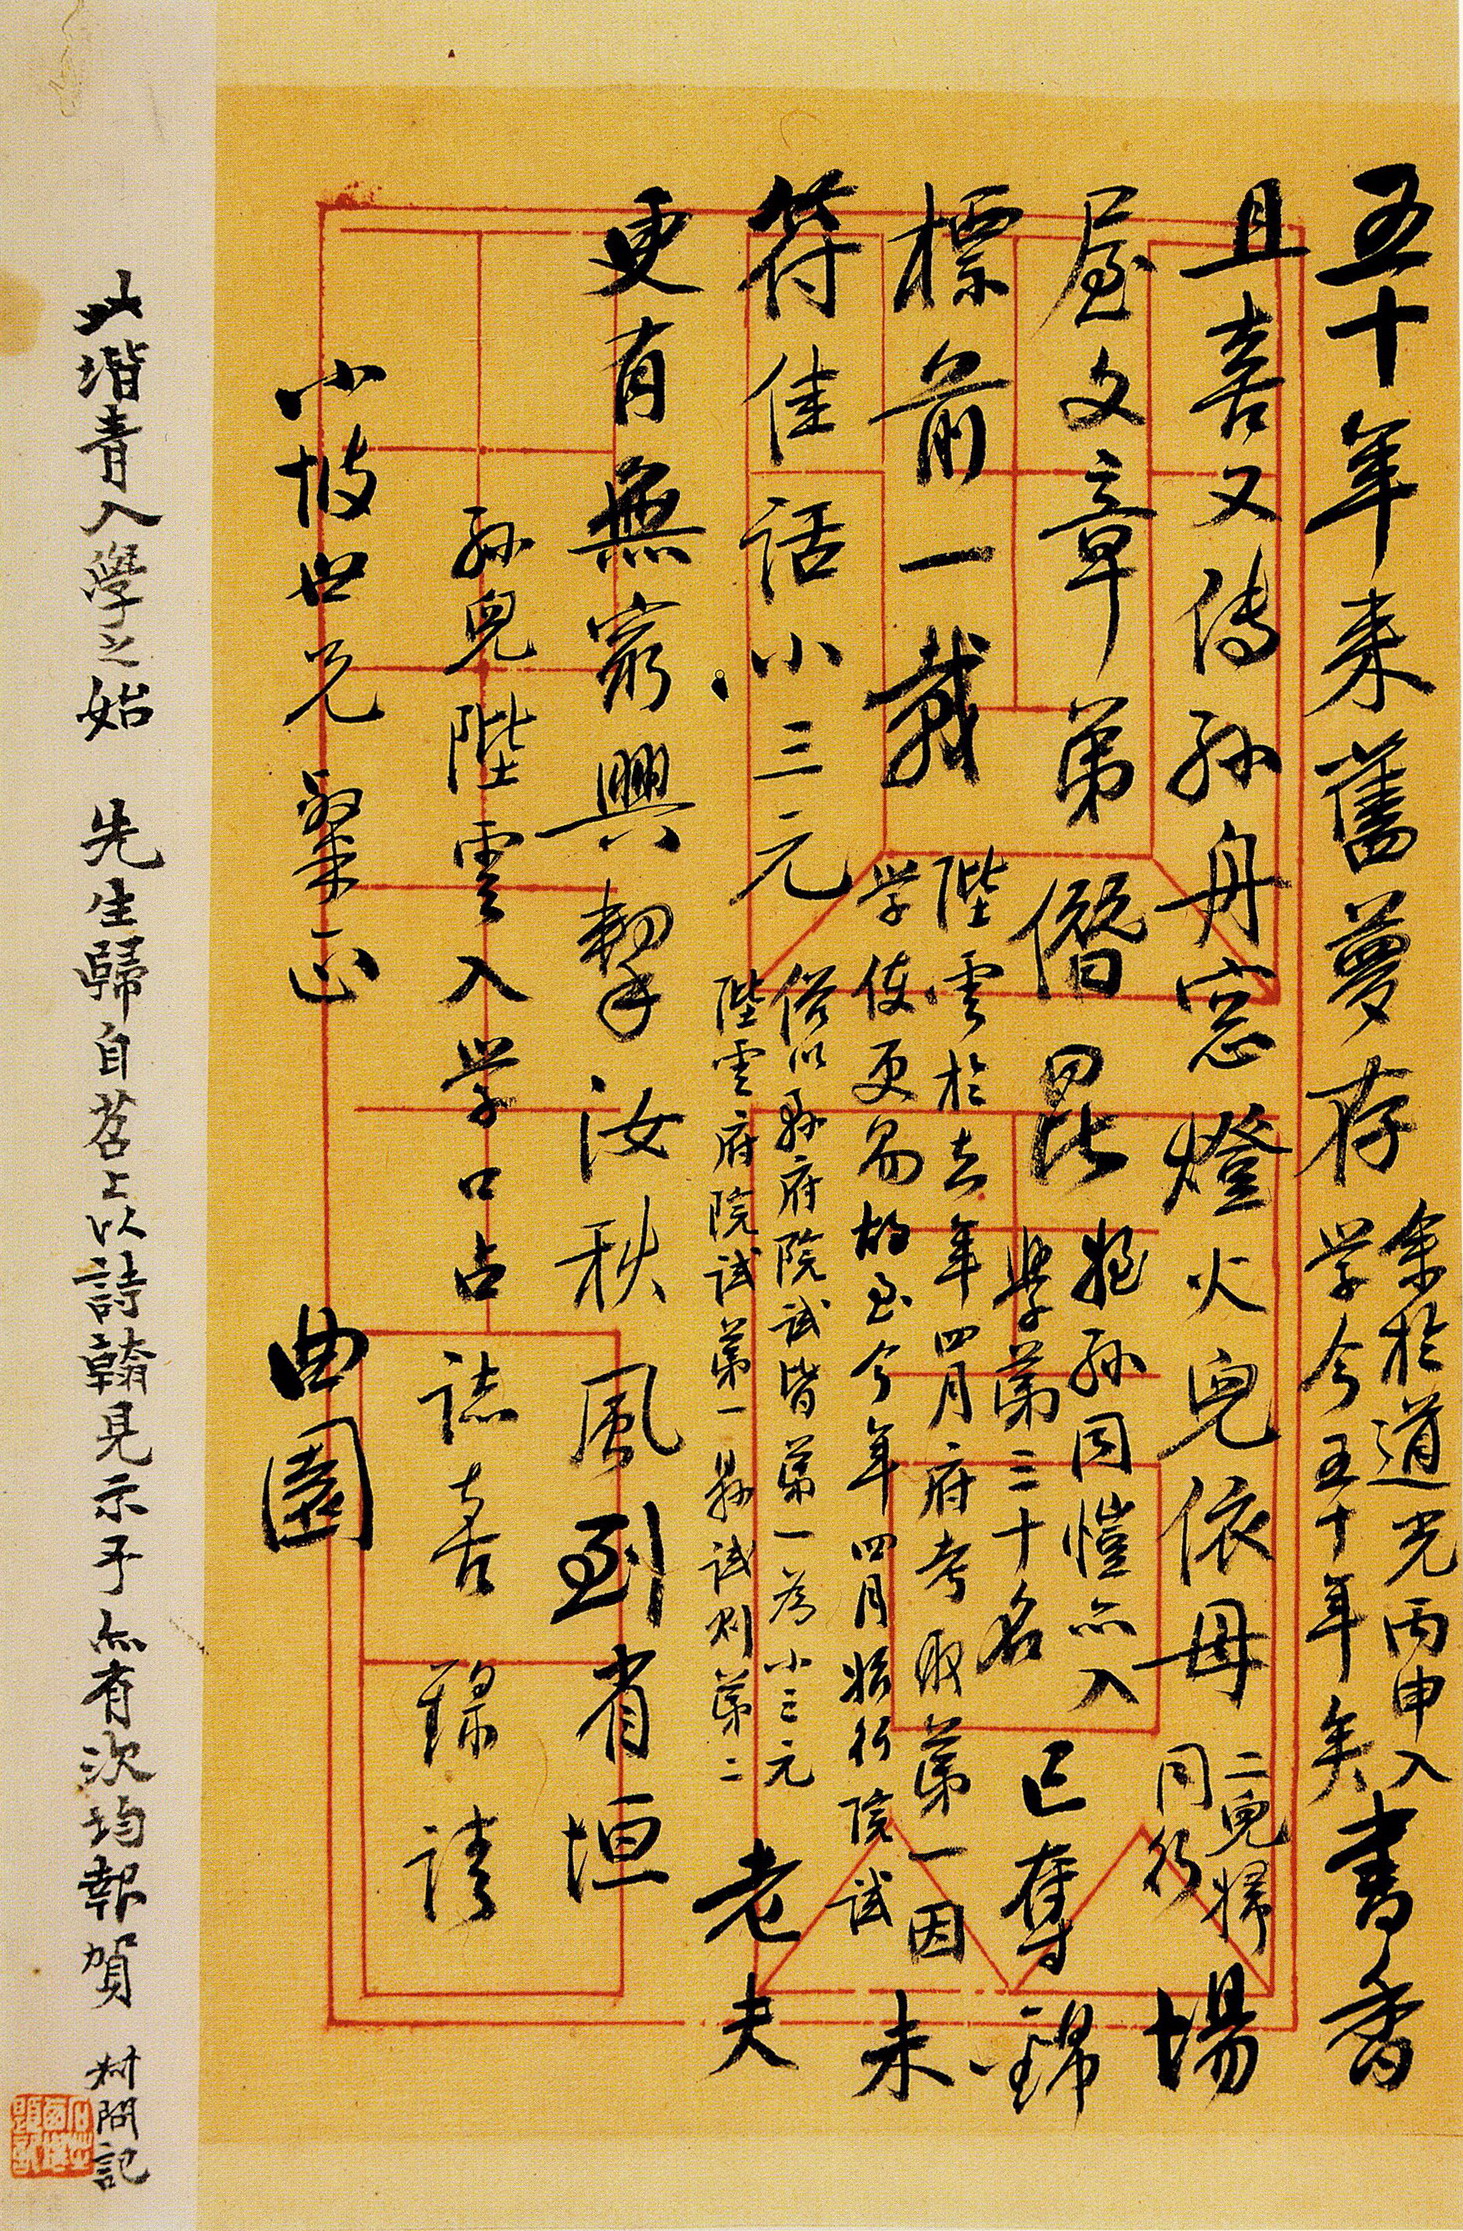 五十年来舊夢存
余於道光丙申入
学今五十年矣
書香
且喜又傳孫舟窓燈火兒依母
二兒婦
同行
場
屋文章弟僭昆
姪孫同愷亦入
學第三十名
已奪錦
標前一載
陛雲於去年四月府考取第一因
学使更易故至今年四月始行院試
未
符佳話小三元
俗以縣府院試皆第一為小三元
陛雲府院試第一縣試則第二
老夫
更有無窮興挈汝秋風到省垣
孫兒陛雲入学口占誌喜録請
小坡世兄粲正
曲園
此堦青入學之始 先生歸自苕上以詩翰見示予亦有次均報賀 叔問記